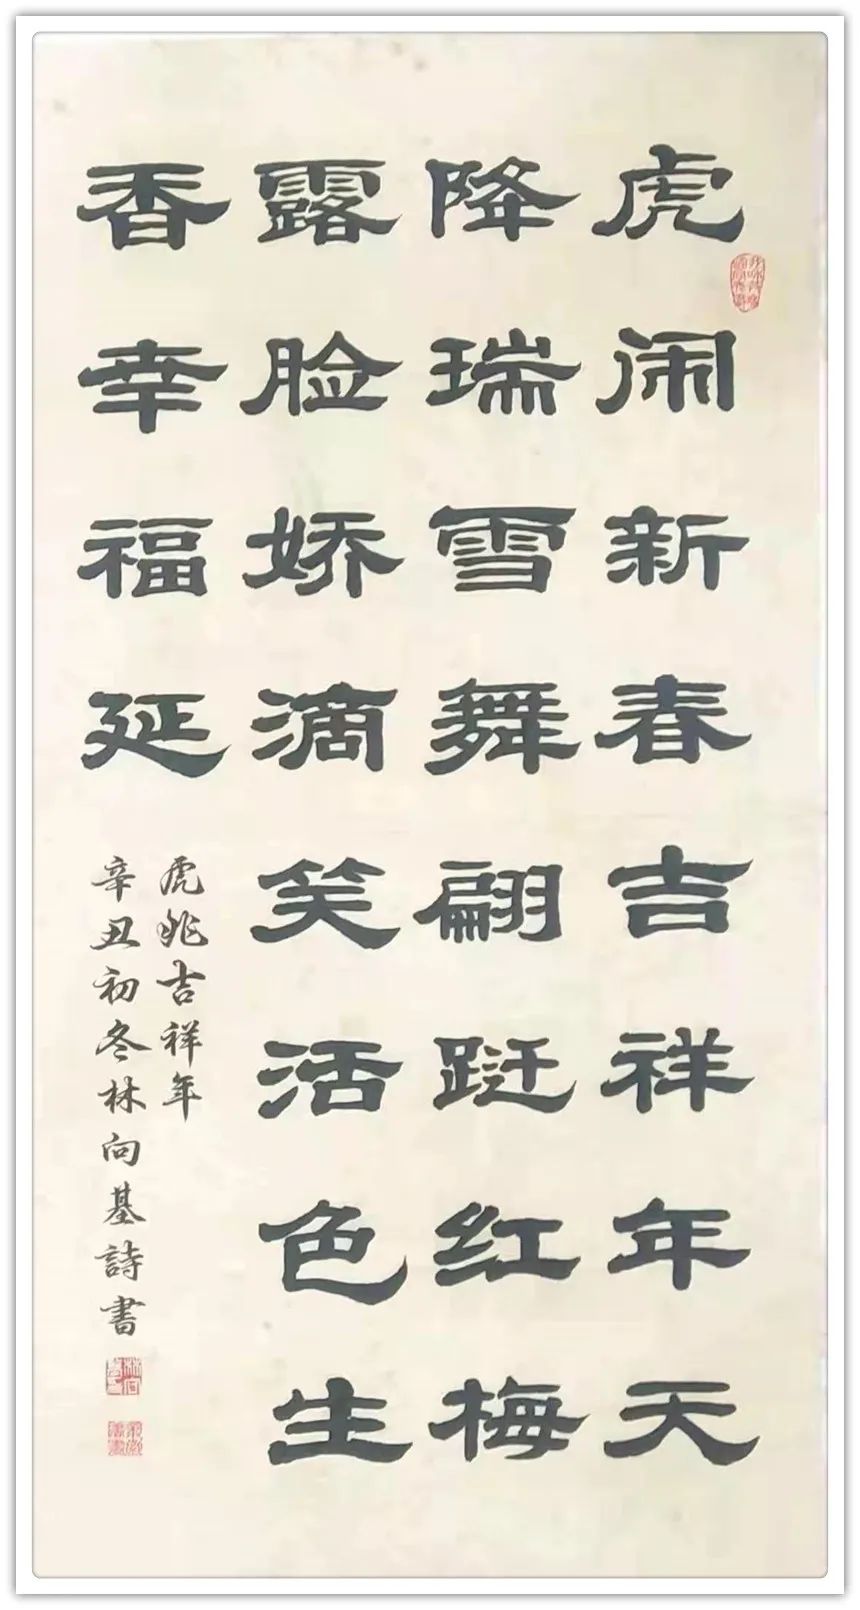 虎闹新春吉祥年天
降瑞雪舞翩跹红梅
露脸娇滴笑活色生
香幸福延
虎兆吉祥年
辛丑初冬林向基詩書